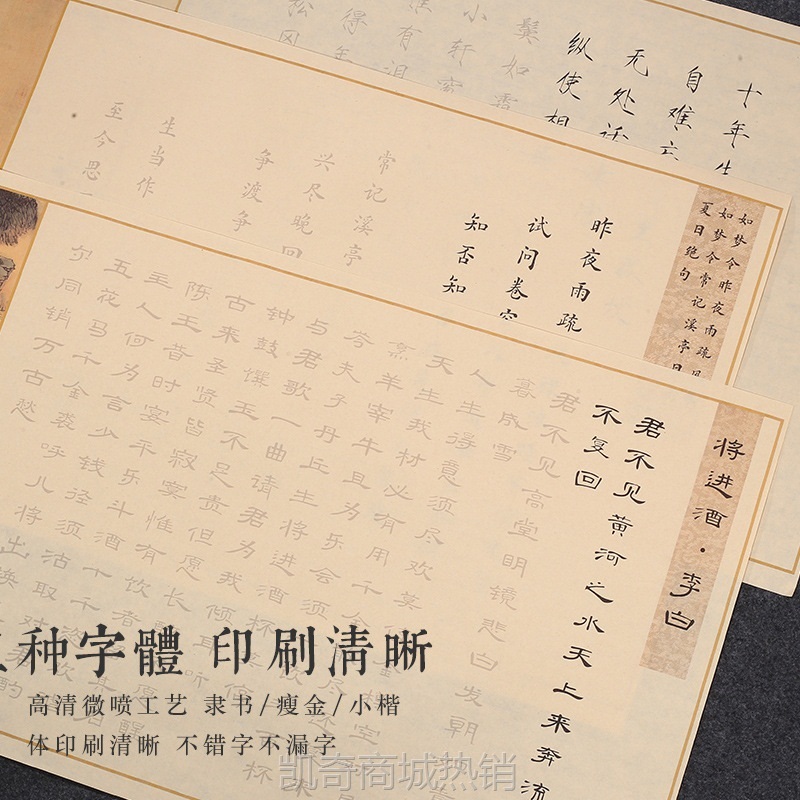 十年生
自难忘
无处话
纵使相
鬓如霜
小轩窗
惟有泪
得年
松冈
如梦令昨夜雨疏风
如梦令常记溪亭日
夏日绝句
昨夜雨疏
试问卷帘
知否知
常记溪亭
兴尽晚回
争渡争
生当作
至今思
将进酒·李白
君不见黄河之水天上来奔流
不复回
君不见高堂明镜悲白发朝
暮成雪
人生得意须尽欢莫
天生我材必有用千
烹羊宰牛且为乐会须
岑夫子丹丘生将进酒杯
与君歌一曲请君为我倾耳听
钟鼓馔玉不足贵但愿长
古来圣贤皆寂寞惟有饮者
陈王昔时宴平乐斗酒十千
主人何为言少钱径须沽取对
五花马千金裘呼儿将出换
尔同销万古愁
种字體 印刷清晰
高清微喷工艺 隶书/瘦金/小楷
体印刷清晰 不错字不漏字
凯奇商城热销